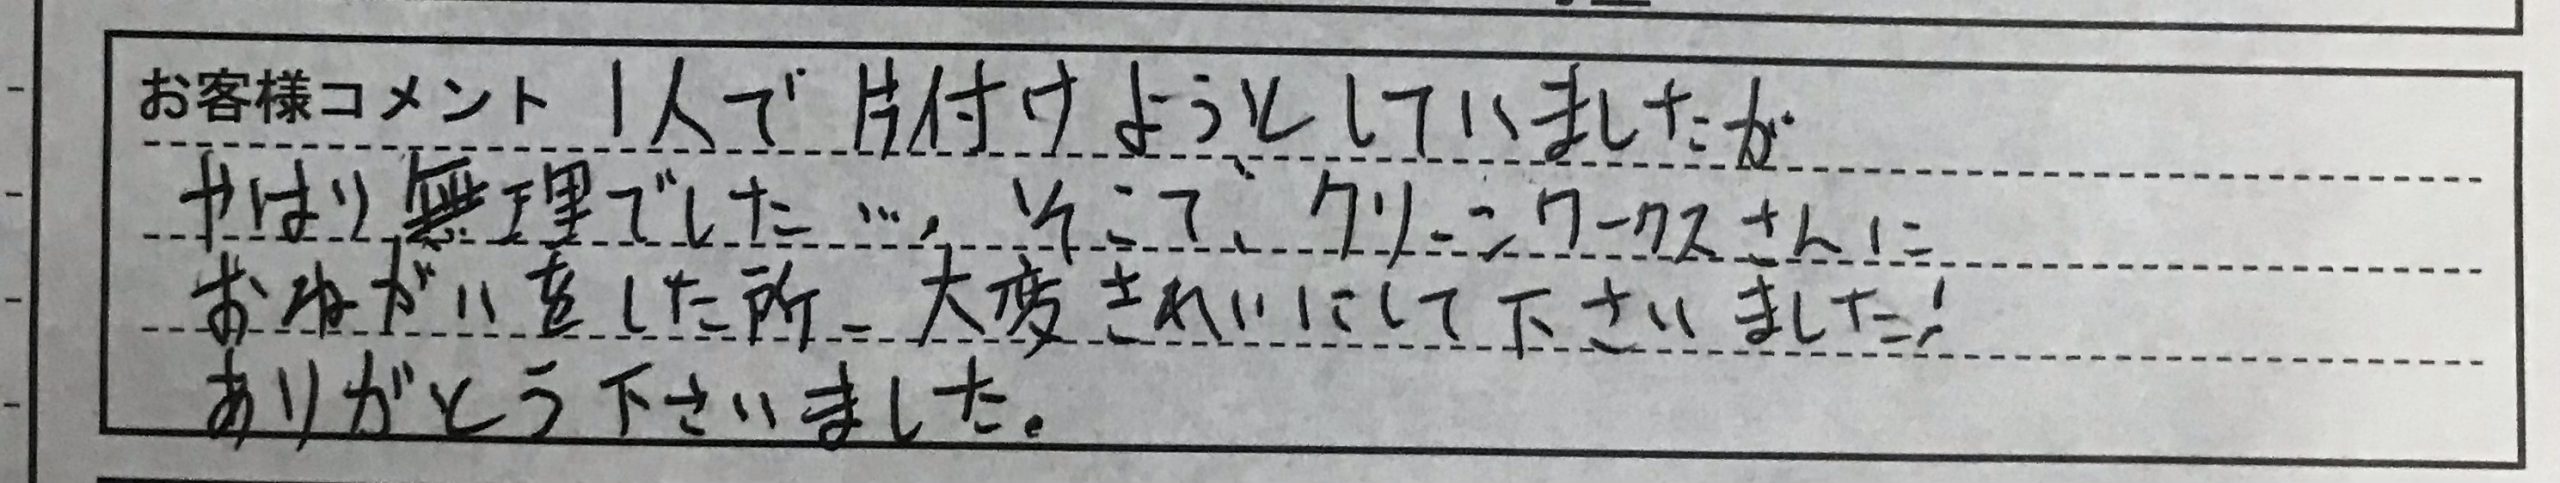 お客様コメント 1人で片付けようとしていましたが
やはり無理でした…。そこで、クリーンワークスさんに
おねがいをした所、大変きれいにして下さいました!
ありがとう下さいました。